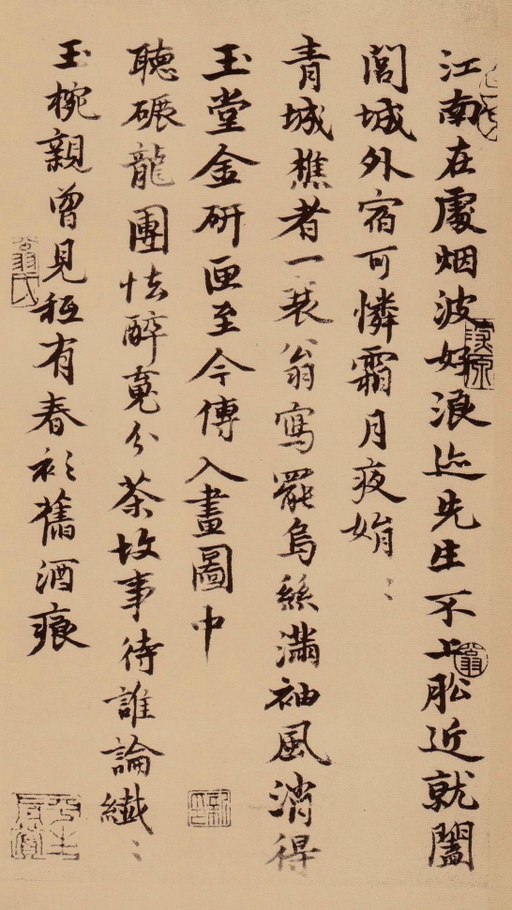 江南在處烟波好浪迹先生不上舩近就闔
閭城外宿可憐霜月夜娟〻
青城樵者一蓑翁寫罷烏絲滿袖風消得
玉堂金研匣至今傳入畫圖中
聽碾龍團怯醉魂分茶故事待誰論纖〻
玉椀親曾見秖有春衫舊酒痕